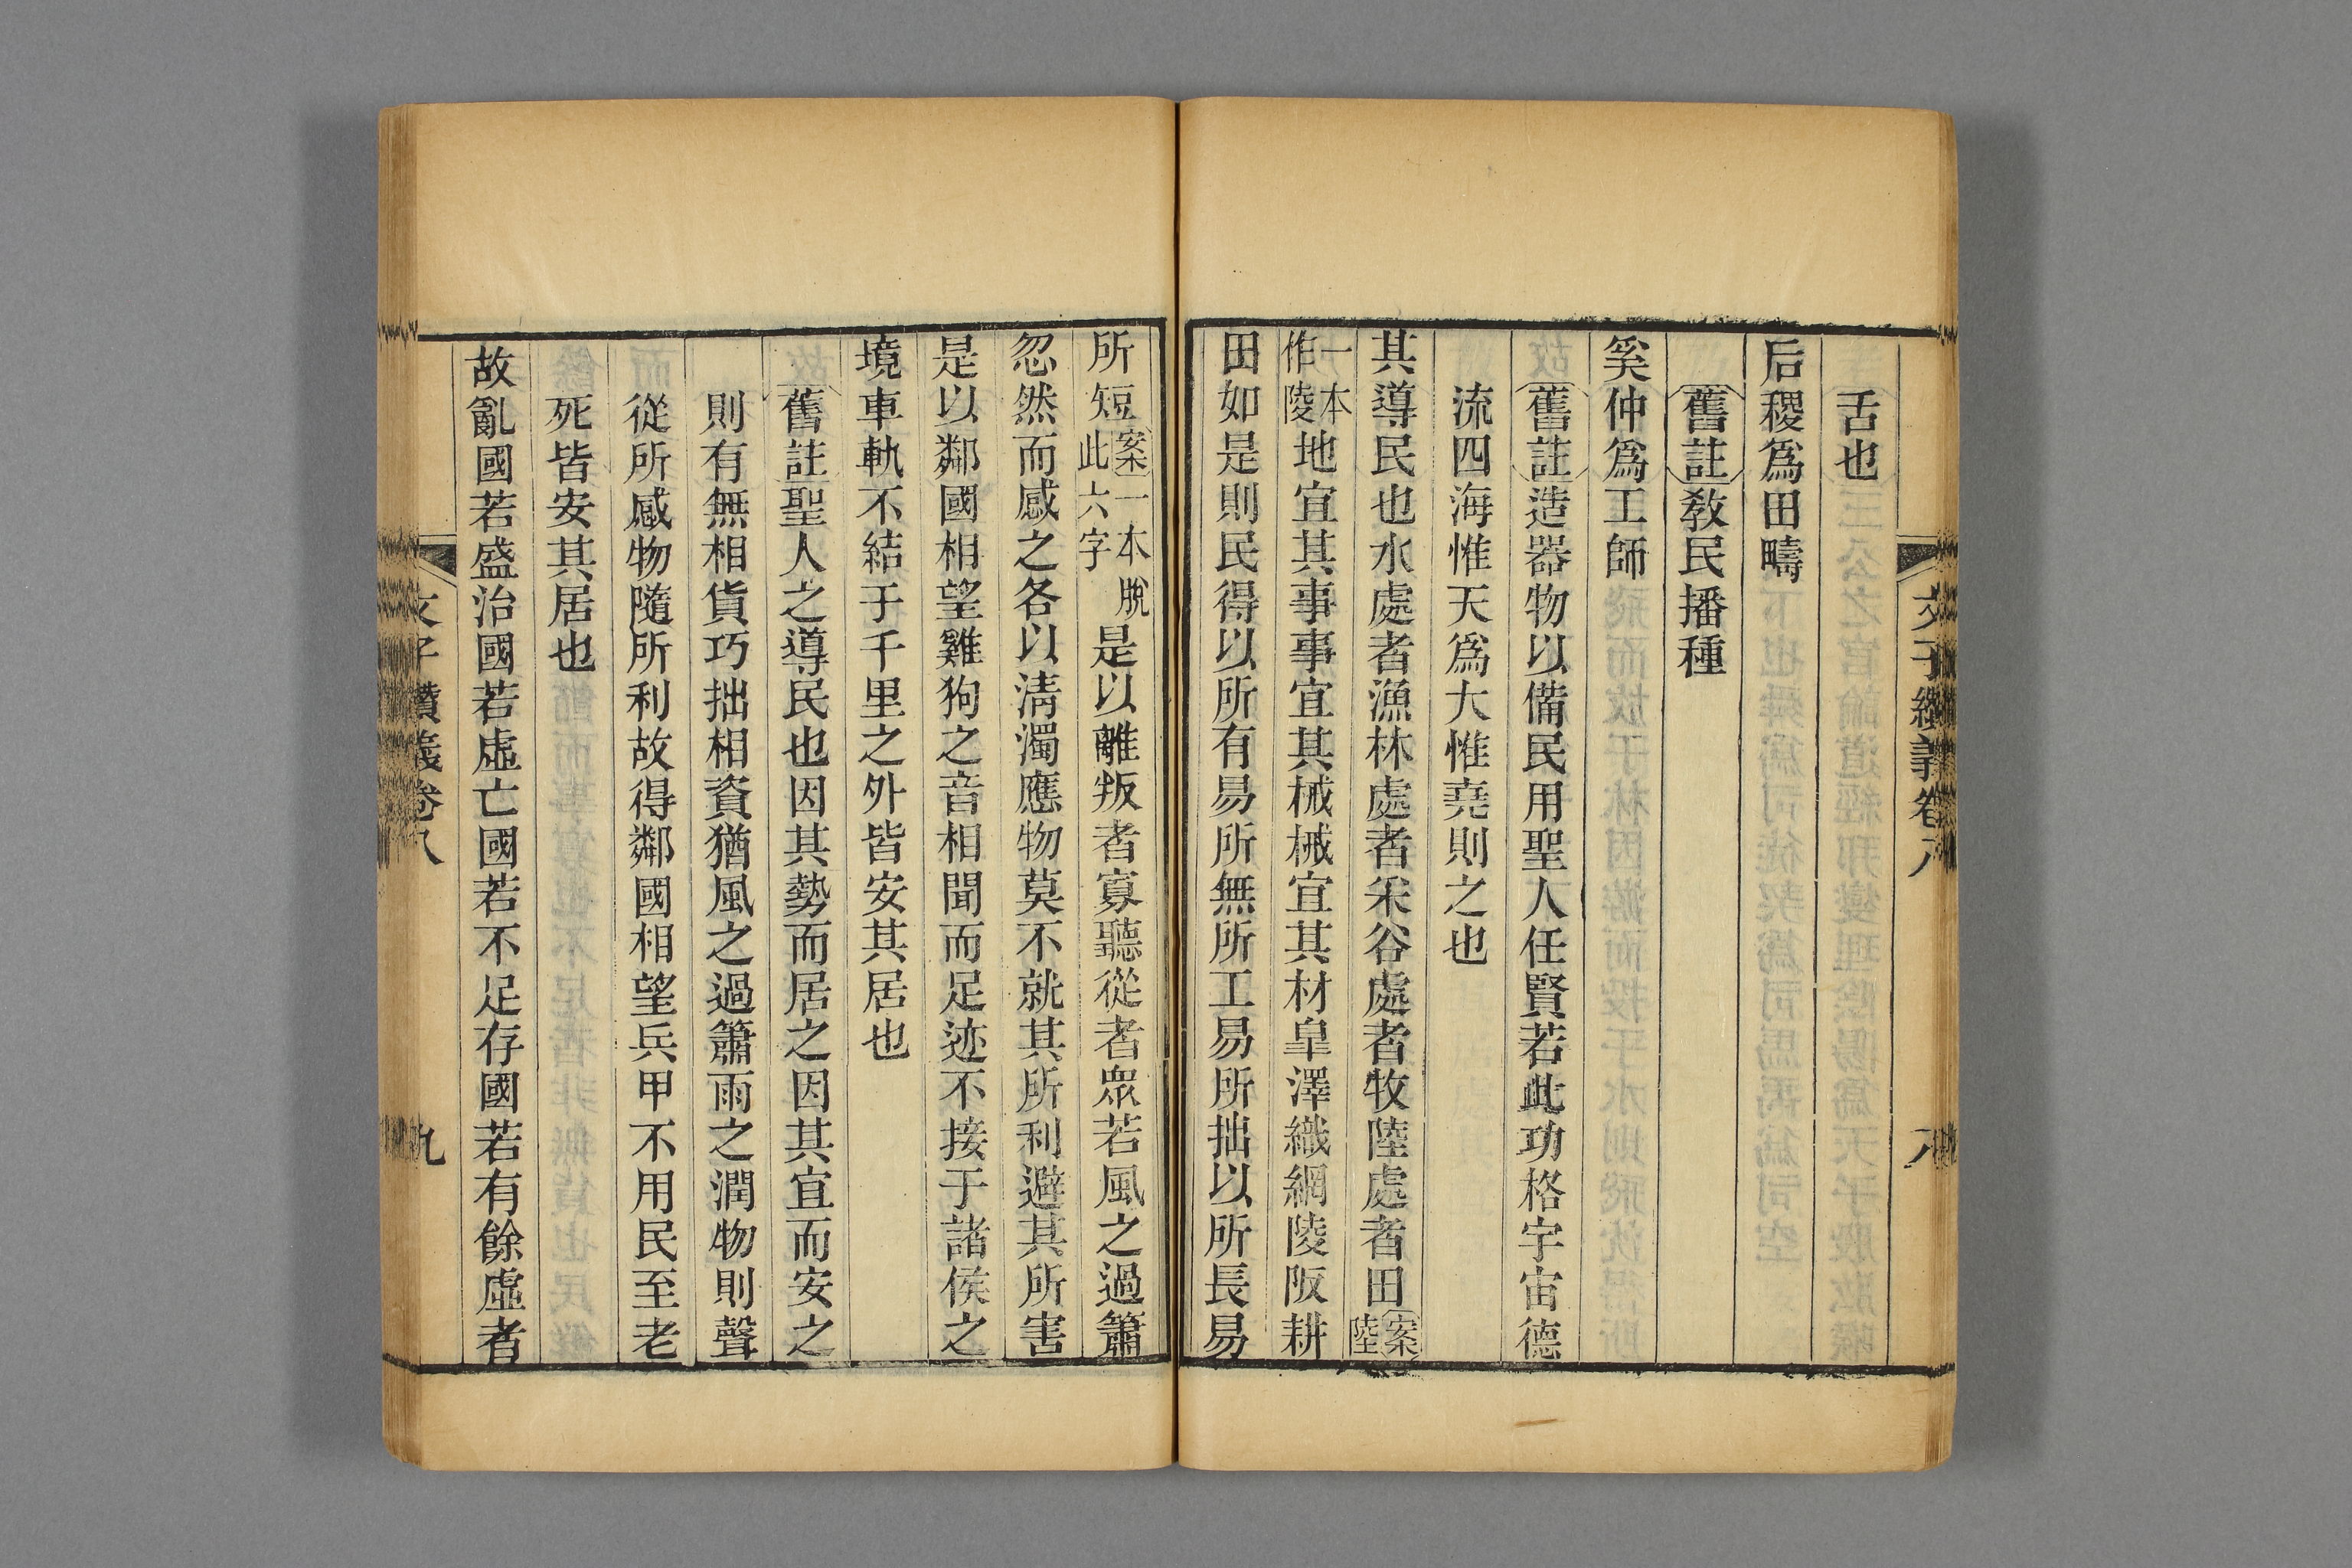 文子纘義卷八
八
舌也
后稷爲田疇
舊註教民播種
奚仲爲工師
舊註造器物以備民用聖人任賢若此功格宇宙德
流四海惟天爲大惟堯則之也
其導民也水處者漁林處者采谷處者牧陸處者田案陸
一本作陵地宜其事事宜其械械宜其材皐澤織網陵阪耕
田如是則民得以所有易所無所工易所拙以所長易
所短案一本脫此六字是以離叛者寡聽從者衆若風之過簫
忽然而感之各以淸濁應物莫不就其所利避其所害
是以鄰國相望雞狗之音相聞而足迹不接于諸侯之
境車軌不結于千里之外皆安其居也
舊註聖人之導民也因其勢而居之因其宜而安之
則有無相貨巧拙相資猶風之過簫雨之潤物則聲
從所感物隨所利故得鄰國相望兵甲不用民至老
死皆安其居也
故亂國若盛治國若虛亡國若不足存國若有餘虛者
文子纘義卷八
九